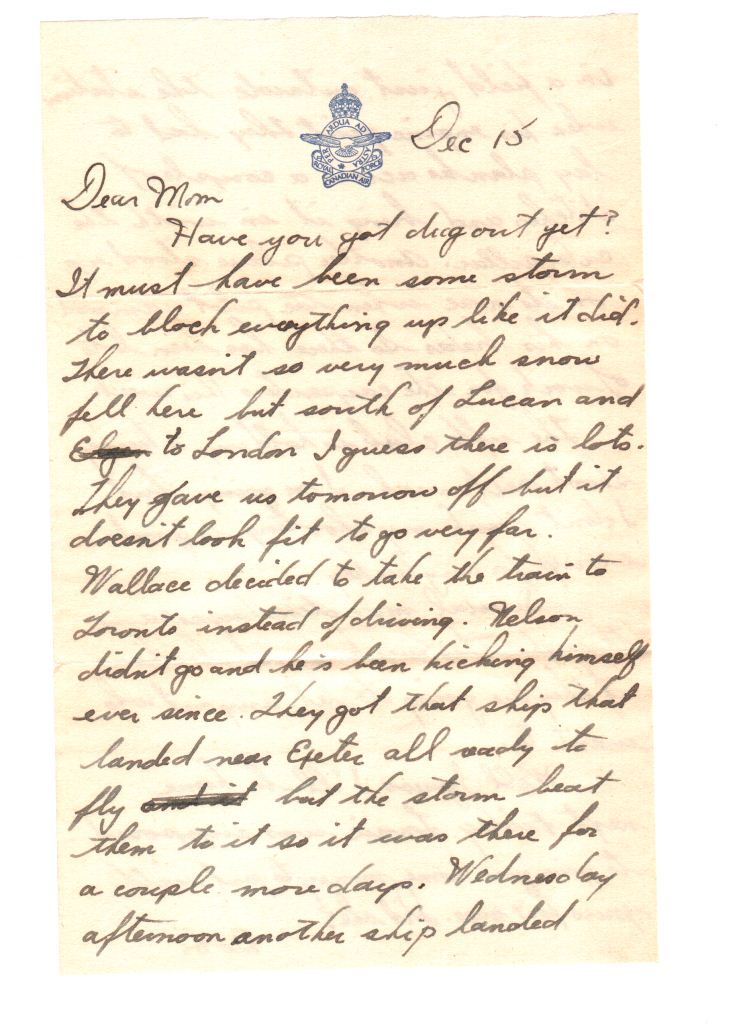 PER ARDUA AD ASTRA
ROYAL CANADIAN AIR FORCE
Dec 15
Dear Mom
Have you got dug out yet?
It must have been some storm
to block everything up like it did.
There wasn't so very much snow
fell here but south of Lucan and
to London I guess there is lots.
They gave us tomorrow off but it
doesn't look fit to go very far.
Wallace decided to take the train to
Toronto instead of driving. Nelson
didn't go and he is been kicking himself
ever since. They got that ship that
landed near Exeter all ready to
fly but the storm beat
them to it so it was there for
a couple more days. Wednesday
afternoon another ship landed